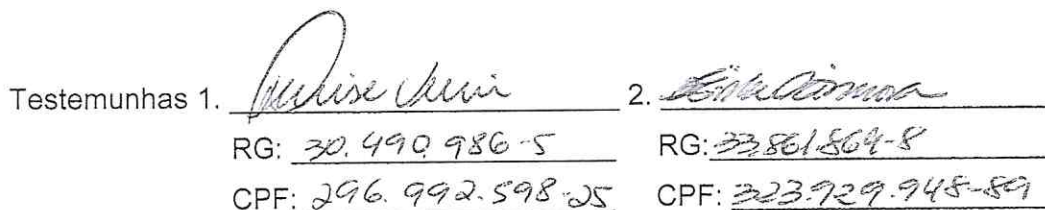 Testemunhas 1. 2.
RG: 30.490.986-5 RG: 33.861.864-8
CPF: 296.992.598-25 CPF: 323.929.948-89